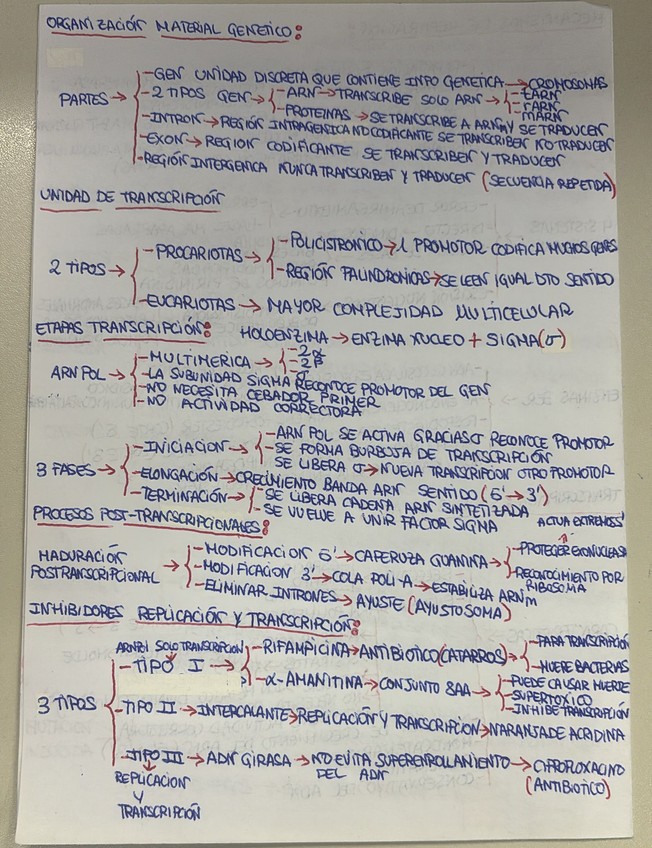 ORGANIZACIÓN MATERIAL GENETICO:
-GEN UNIDAD DISCRETA QUE CONTIENE INFO GENETICA→CROMOSOMAS
PARTES→ -2 TIPOS GEN→ -ARN→TRANSCRIBE SOLO ARN→ -tARN
-rARN
-mARN
-PROTEINAS→SE TRANSCRIBE A ARNm Y SE TRADUCEN
-INTRON→REGIÓN INTRAGENICA NO CODIFICANTE SE TRANSCRIBEN NO TRADUCEN
-EXON→REGION CODIFICANTE SE TRANSCRIBEN Y TRADUCEN
-REGIÓN INTERGENICA NUNCA TRANSCRIBEN Y TRADUCEN (SECUENCIA REPETIDA)
UNIDAD DE TRANSCRIPCIÓN
2 TIPOS→ -PROCARIOTAS→ -POLICISTRONICO→1 PROMOTOR CODIFICA MUCHOS GENES
-REGIÓN PALINDRONICAS→SE LEEN IGUAL DTO SENTIDO
-EUCARIOTAS→MAYOR COMPLEJIDAD MULTICELULAR
ETAPAS TRANSCRIPCIÓN: HOLOENZIMA→ENZIMA NUCLEO + SIGMA(σ)
ARN POL→ -MULTIMERICA→ -2α
-2β
-σ
-LA SUBUNIDAD SIGMA RECONOCE PROMOTOR DEL GEN
-NO NECESITA CEBADOR PRIMER
-NO ACTIVIDAD CORRECTORA
3 FASES→ -INICIACION→ -ARN POL SE ACTIVA GRACIAS σ RECONOCE PROMOTOR
-SE FORMA BURBUJA DE TRANSCRIPCIÓN
SE LIBERA σ→NUEVA TRANSCRIPCION OTRO PROMOTOR
-ELONGACIÓN→CRECIMIENTO BANDA ARN SENTIDO (5'→3')
-TERMINACIÓN→ -SE LIBERA CADENA ARN SINTETIZADA
-SE VUELVE A UNIR FACTOR SIGMA
PROCESOS POST-TRANSCRIPCIONALES:
ACTUA EXTREMOS5'
MADURACIÓN POSTRANSCRIPCIONAL→ -MODIFICACION 5'→CAPERUZA GUANINA→ -PROTEGER EXONUCLEASA
-RECONOCIMIENTO POR RIBOSOMA
-MODIFICACION 3'→COLA POLI-A→ESTABILIZA ARNm
-ELIMINAR INTRONES→AYUSTE (AYUSTOSOMA)
INHIBIDORES REPLICACIÓN Y TRANSCRIPCIÓN:
ARNPOL SOLO TRANSCRIPCION
3 TIPOS -TIPO I→ -RIFAMPICINA→ANTIBIOTICO(CATARROS)→ -PARA TRANSCRIPCIÓN
-MUERE BACTERIAS
-α-AMANITINA→CONJUNTO 8AA→ -PUEDE CAUSAR MUERTE
-SUPERTOXICO
-INHIBE TRANSCRIPCIÓN
-TIPO II→INTERCALANTE→REPLICACIÓN Y TRANSCRIPCION→NARANJA DE ACRIDINA
-TIPO III→ADN GIRASA→NO EVITA SUPERENROLLAMIENTO DEL ADN→CIPROFLOXACINO (ANTIBIOTICO)
REPLICACION
Y
TRANSCRIPCIÓN